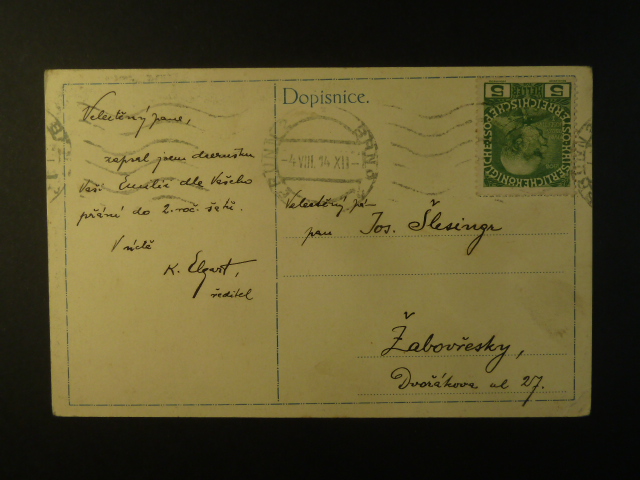 Dopisnice.
Velectěný pane,
zapsal jsem dcerušku
Vaši Emilii dle Vašeho
přání do 2. roč. šatů.
V úctě
K. Elgart,
ředitel
BRÜNN
BRNO
-4.VIII.14 XII-
5 5
KAISERLICHE KÖNIGLICHE
ÖSTERREICHISCHE POST
Velectěný pán
pan Jos. Šlesingr
Žabovřesky,
Dvořákova ul 27.